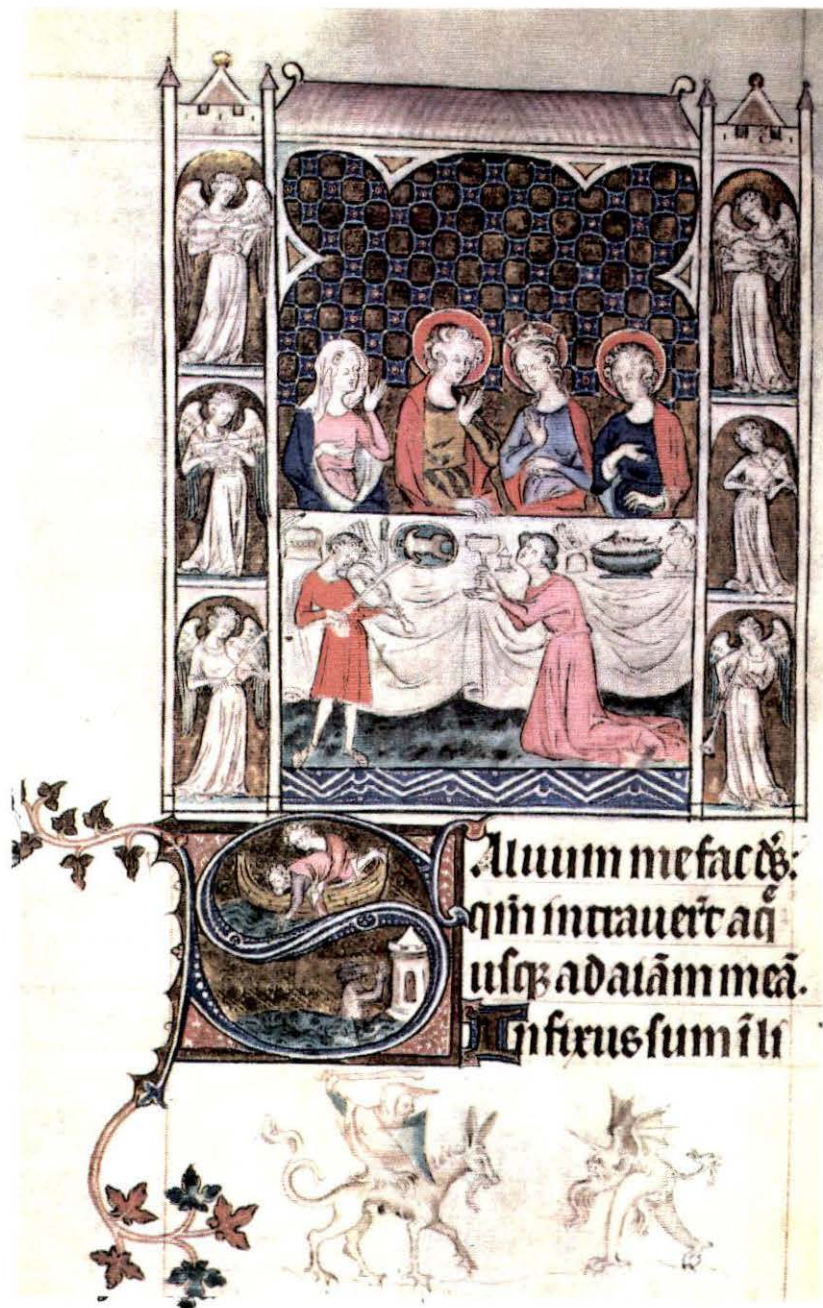 Aluum me fac ds:
qm intrauert aq̄
usq; ad aīam meā.
Infixus sum ī li